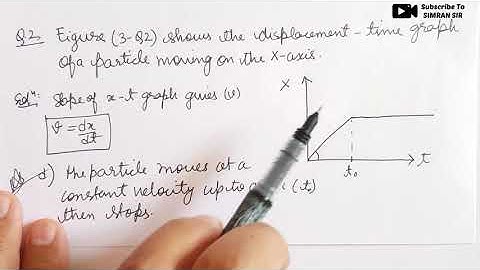 Subscribe To
SIMRAN SIR
Q2. Figure (3-Q2) shows the displacement - time graph
of a particle moving on the x-axis.
Solⁿ: Slope of x-t graph gives (v)
v = dx/dt
d) The particle moves at a
constant velocity up to a (t₀)
then stops.
X
t₀
t